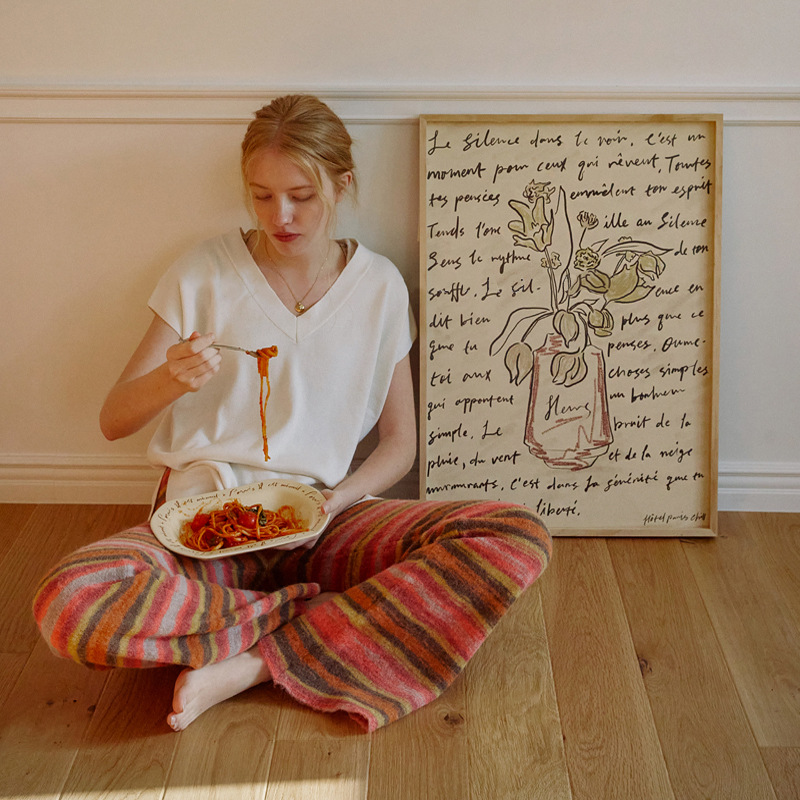 Le Silence dans le noir. C'est un
moment pour ceux qui rêvent, Toutes
tes pensées emmêlent ton esprit
Tends l'oreille au Silence
Sens le rythme de ton
souffle. Le Sil- ence en
dit bien plus que ce
que tu penses. Oume-
toi aux choses simples
qui apportent un bonheur
simple. Le bruit de la
pluie, du vent et de la neige
murmurants. C'est dans la sérénité que tu
liberté.
fleurs
Hôtel Paris Chill